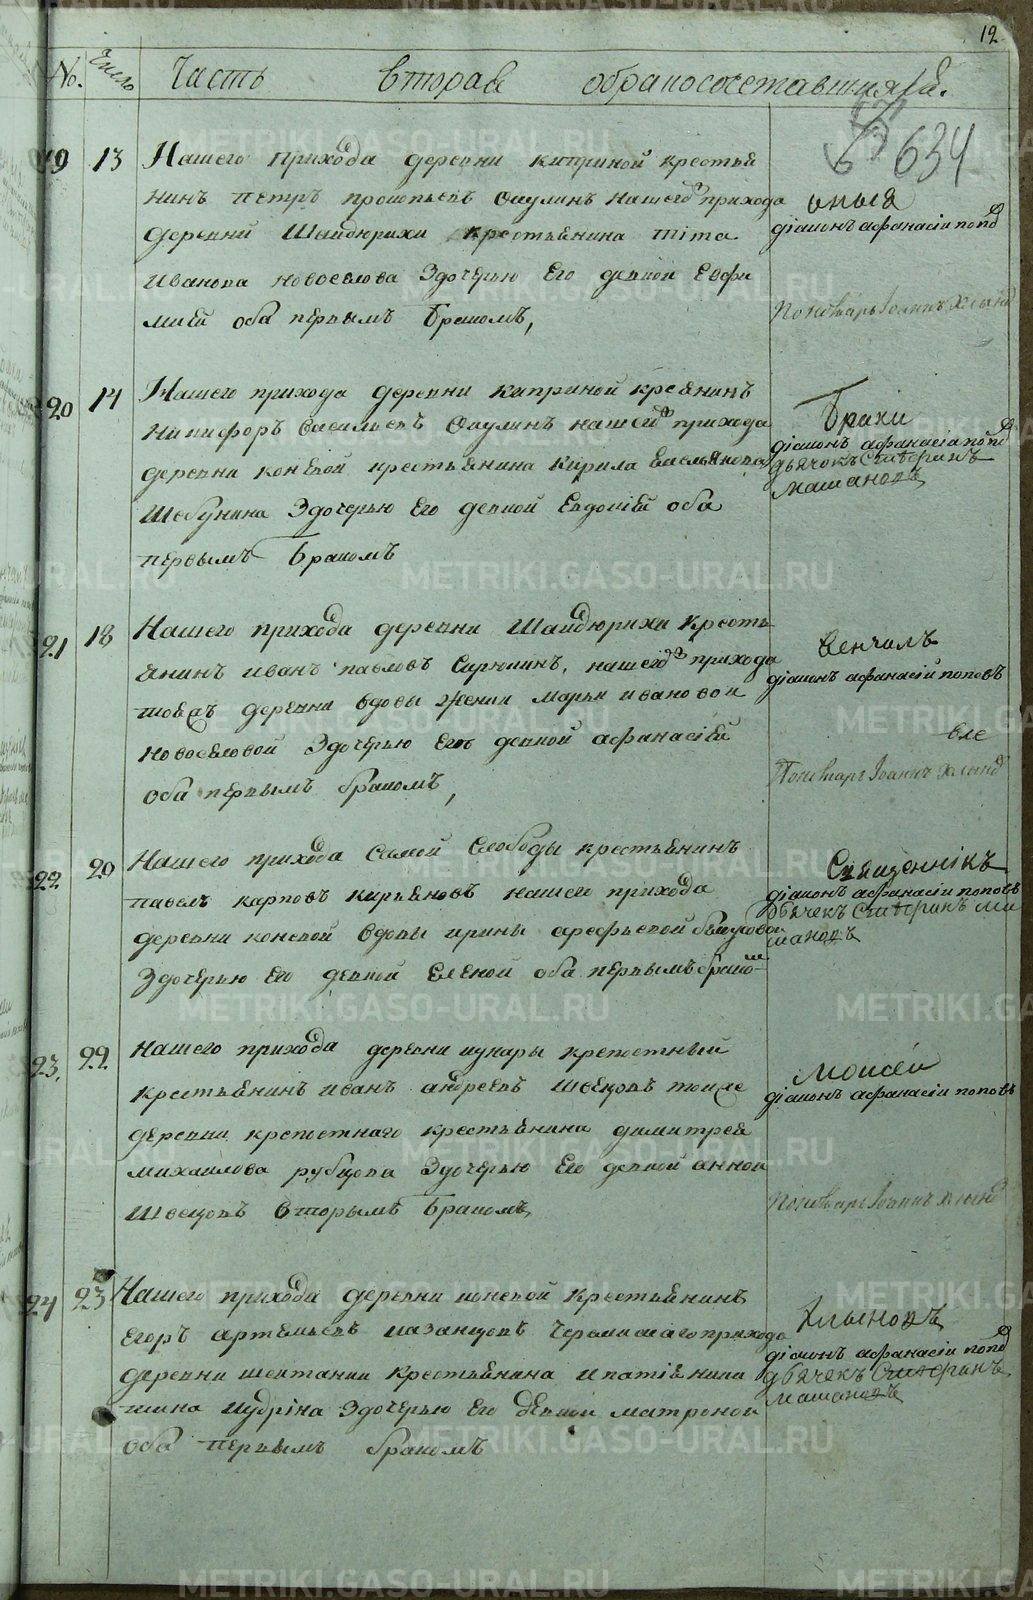 12
№. Число Часть вторая обракосочетавшихся.
634
19 13 Нашего прихода деревни киприной крестья
нинъ петръ прокопьевъ нашего прихода
деревни Шайдюрихи крестьянина тита
иванова новоселова Здочерью Его девкой Евфи
мией оба первымъ бракомъ,
оныя
діаконъ афанасіи поповъ
Пономарь Іоаннъ Хлынов
20 14 Нашего прихода деревни киприной кресянинъ
никифоръ васильевъ нашего прихода
деревни коневой крестьянина кирила Емельянова
Шебунина Здочерью Его девкой Евдокией оба
первымъ бракомъ
браки
діаконъ афанасіи поповъ
дьячокъ
машановъ
21 18 Нашего прихода деревни Шайдюрихи крестъ
янинъ иванъ павловъ нашего прихода
тояжъ деревни вдовы жены марьи ивановой
новоселовой Здочерью Его девкой афанасіей
оба первымъ бракомъ,
венчалъ
діаконъ афанасіи поповъ
вле
Пономарь Іоаннъ Хлынов
22 20 Нашего прихода самой слободы крестьянинъ
павелъ карповъ кирьяновъ нашего прихода
деревни коневой вдовы ирины арефьевой
Здочерью Его девкой Еленой оба первымъ бракомъ
Священникъ
діаконъ афанасіи поповъ
дьячекъ ма
шановъ
23. 22 Нашего прихода деревни крепостный
крестьянинъ иванъ андреевъ швецовъ тояже
деревни крепостнаго крестьянина димитрея
михаилова рубцова Здочерью Его девкой анной
Швецовъ вторымъ бракомъ,
Моисей
діаконъ афанасіи поповъ
Пономарь Іоаннъ Хлынов
24 23 Нашего прихода деревни коневой крестьянинъ
Егоръ артемьевъ казанцовъ прихода
деревни шейтанки крестьянина ипатія ники
тина Здочерью Его девкой матроной
оба первымъ бракомъ
Хлыновъ
діаконъ афанасіи поповъ
дьячекъ
машановъ
METRIKI.GASO-URAL.RU